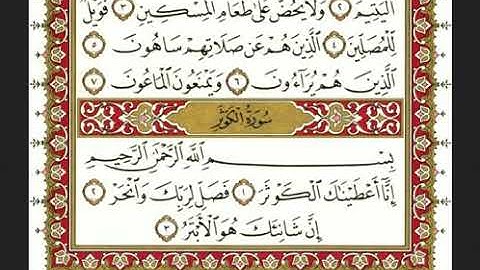 ٱلْيَتِيمَ ٢ وَلَا يَحُضُّ عَلَىٰ طَعَامِ ٱلْمِسْكِينِ ٣ فَوَيْلٌ
لِّلْمُصَلِّينَ ٤ ٱلَّذِينَ هُمْ عَن صَلَاتِهِمْ سَاهُونَ ٥
ٱلَّذِينَ هُمْ يُرَآءُونَ ٦ وَيَمْنَعُونَ ٱلْمَاعُونَ ٧
سُورَةُ الْكَوْثَرِ
بِسْمِ ٱللَّهِ ٱلرَّحْمَٰنِ ٱلرَّحِيمِ
إِنَّآ أَعْطَيْنَٰكَ ٱلْكَوْثَرَ ١ فَصَلِّ لِرَبِّكَ وَٱنْحَرْ ٢
إِنَّ شَانِئَكَ هُوَ ٱلْأَبْتَرُ ٣